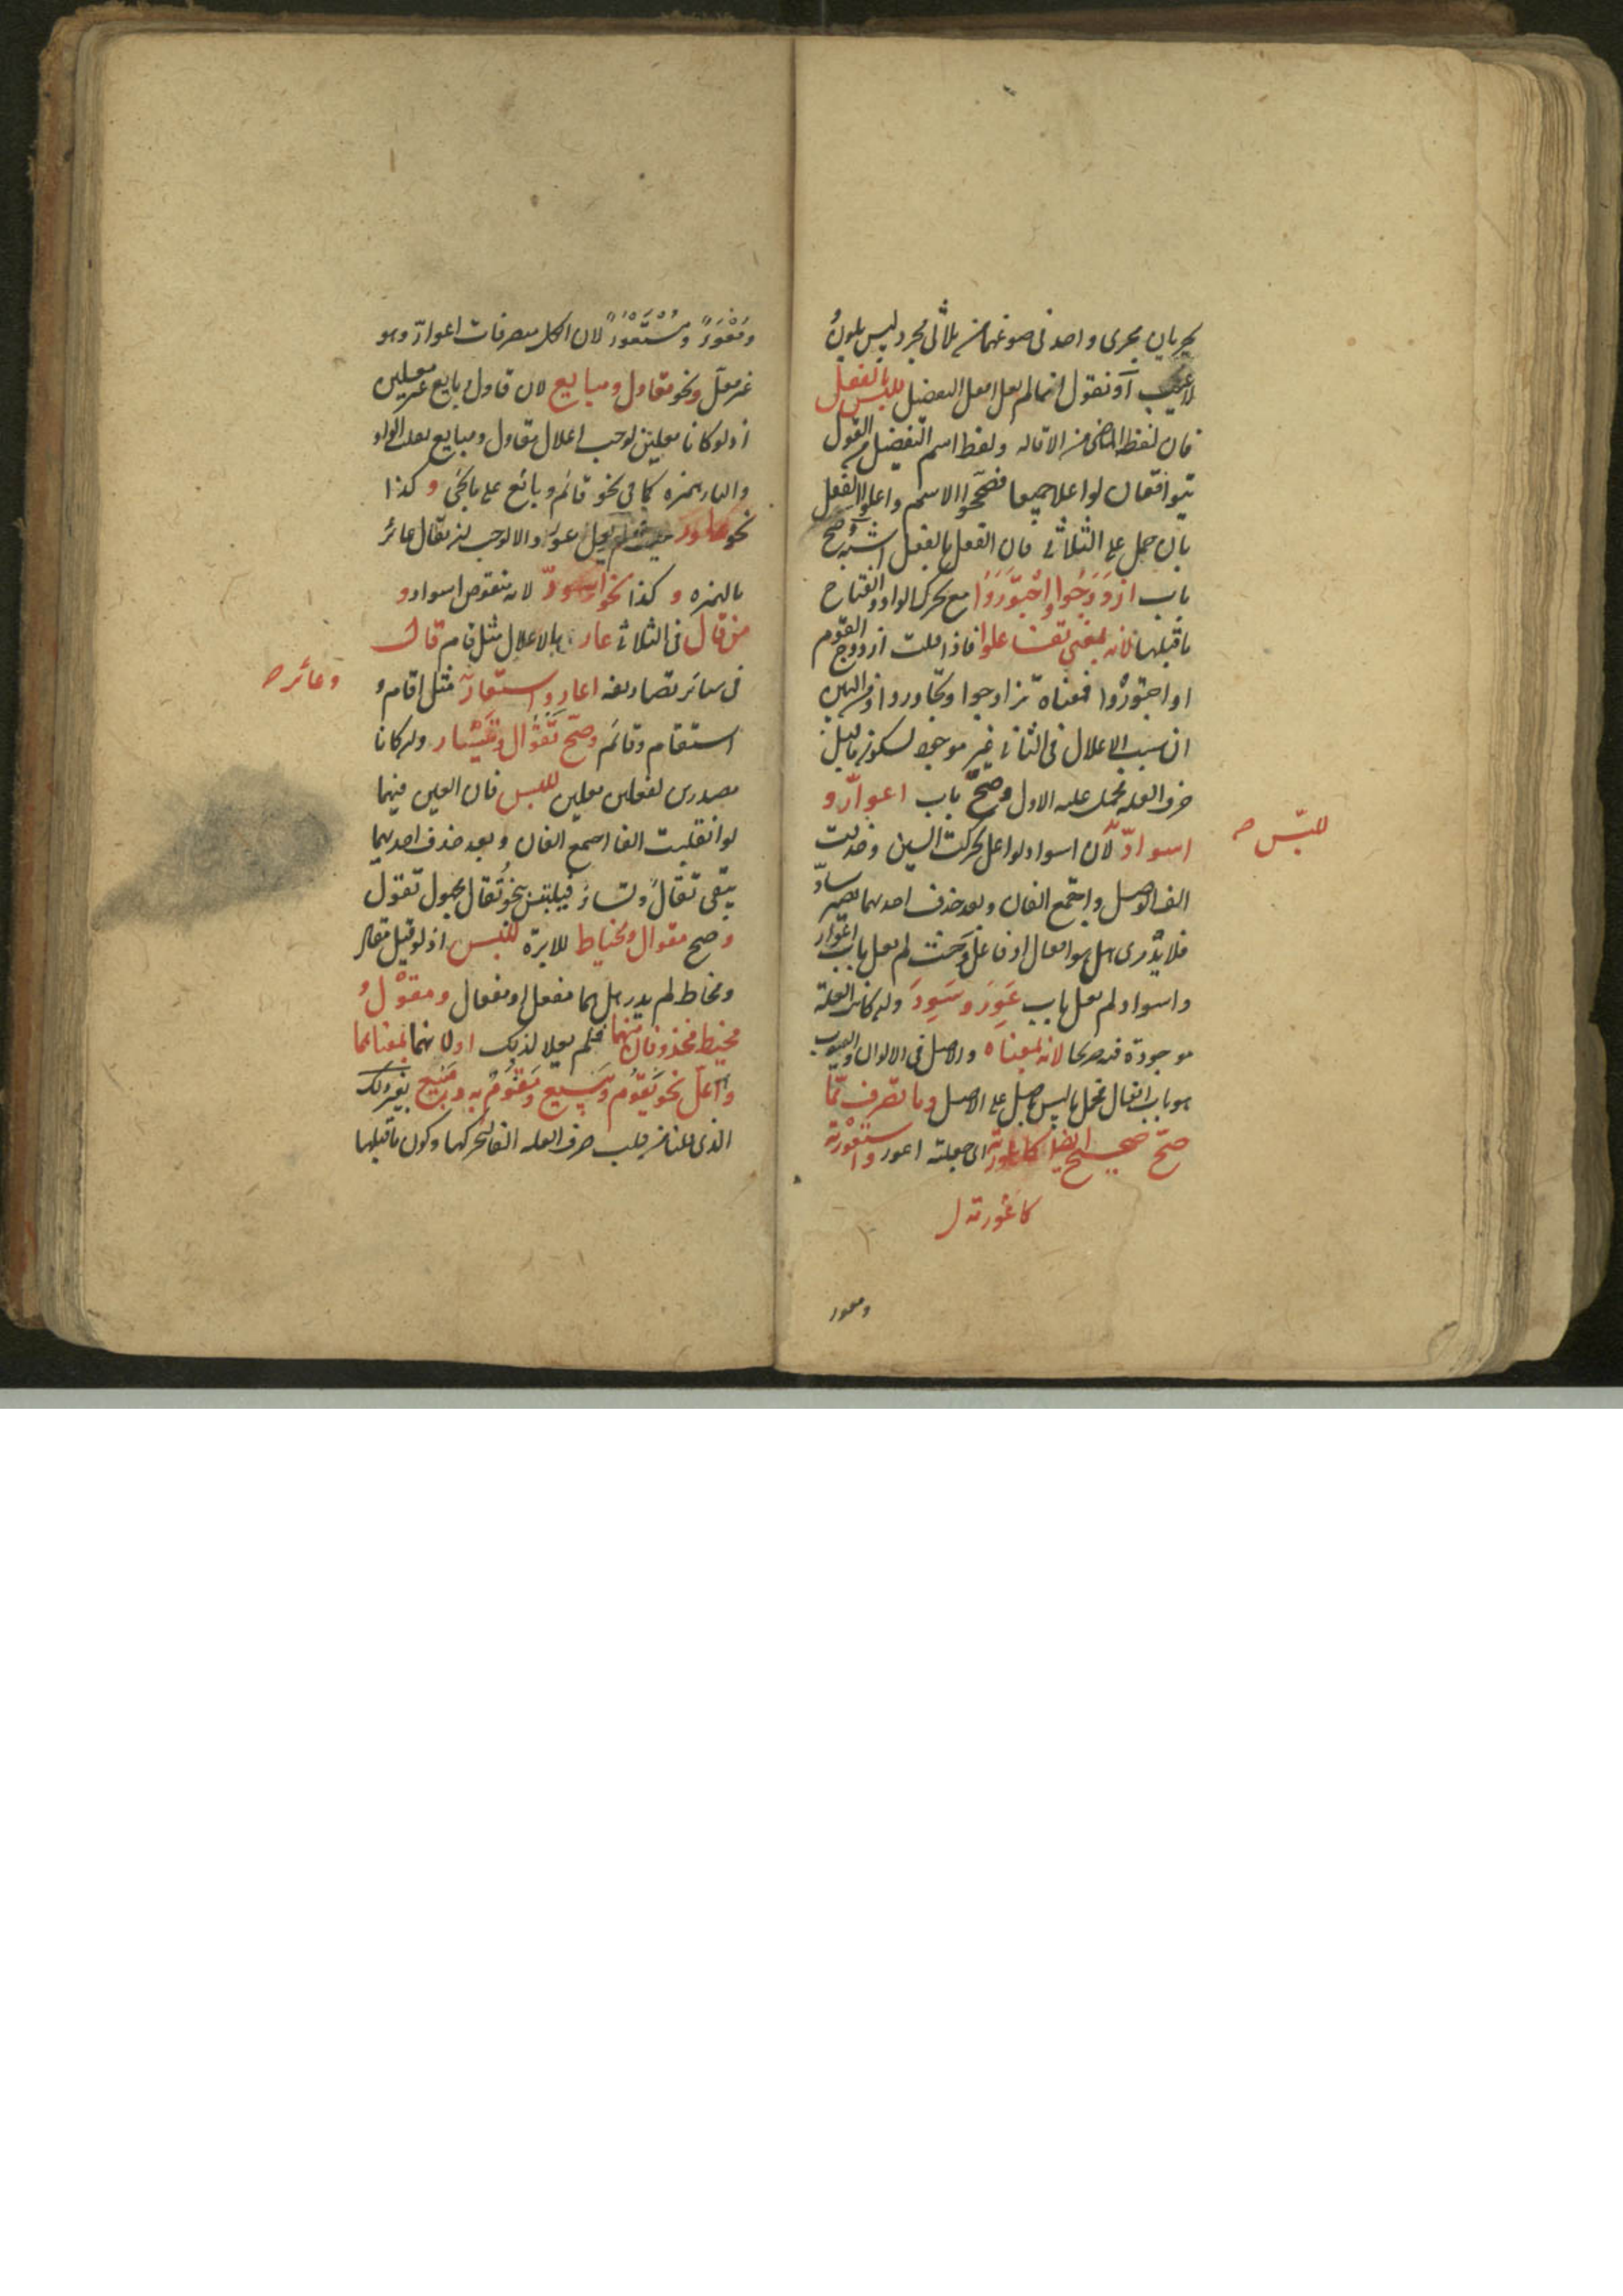 يجريان مجرى واحد في صوغهما من ثلاثي مجرد ليس بلون
لا عيب أو نقول انما لم يعل افعل التفضيل للبس بالفعل
فان لفظ الماضي من الاقالة ولفظ اسم التفضيل من القول
يتوافقان لو اعلا جميعا فصححوا الاسم واعلوا الفعل
بان حمل على الثلاثي فان الفعل بالفعل اشبه وصح
باب ازدوجوا واجتوروا مع تحرك الواو وانفتاح
ما قبلها لانه بمعنى تفاعلوا فاذا قلت ازدوج القوم
او اجتوروا فمعناه تزاوجوا وتجاوروا
ان سبب الاعلال في الثاني غير موجود لسكون ما قبل
حرف العلة فحمل عليه الاول وصح باب اعوار و
اسواد لان اسواد لو اعل تحركت السين وحذفت
للبس صح
الف الوصل واجتمع الفان وبعد حذف احدهما يصير ساد
فلا يدرى هل هو افعال او فاعل وحيث لم يعل باب اعوار
واسواد لم يعل باب عور وسود وان كانت العلة
موجودة فيه صريحا لانه بمعناه والاصل في الالوان والعيوب
هو باب افعال فحمل ما ليس باصل على الاصل وما تصرف مما
صح صحيح ايضا كاعورته اي جعلته اعور واستعورته
كاعورته
ومعور
ومعور ومستعور لان الكل متصرفات اعوار وهو
غير معل ونحو مقاول ومبايع لان قاول وبايع غير معلين
اذ لو كانا معلين لوجب اعلال مقاول ومبايع بقلب الواو
والياء همزة كما في نحو قائم وبائع على ما يجئ وكذا
نحو عاور حيث لم يعل عور والا لوجب ان يقال عائر
بالهمزة وكذا نحو اسود لانه منقوص اسواد و
من قال في الثلاثي عار بالاعلال مثل قام قال
في سائر تصاريفه اعار واستعار مثل اقام و
وعائر صح
استقام وقائم وصح تقوال وتسيار وان كانا
مصدرين لفعلين معلين للبس فان العين فيهما
لو انقلبت الفا اجتمع الفان وبعد حذف احديهما
يبقى تقال وتسار فيلتبس بنحو تقال مجهول تقول
وصح مقوال ومخياط للابرة للبس اذ لو قيل مقال
ومخاط لم يدر هل هما مفعل او مفعال ومقول و
مخيط محذوفان منهما فلم يعلا لذلك او لانهما بمعناهما
واعل نحو يقوم ويبيع ومقوم به ومبيع بغير ذلك
الذي قلنا من قلب حرف العلة الفا لتحركها وكون ما قبلها